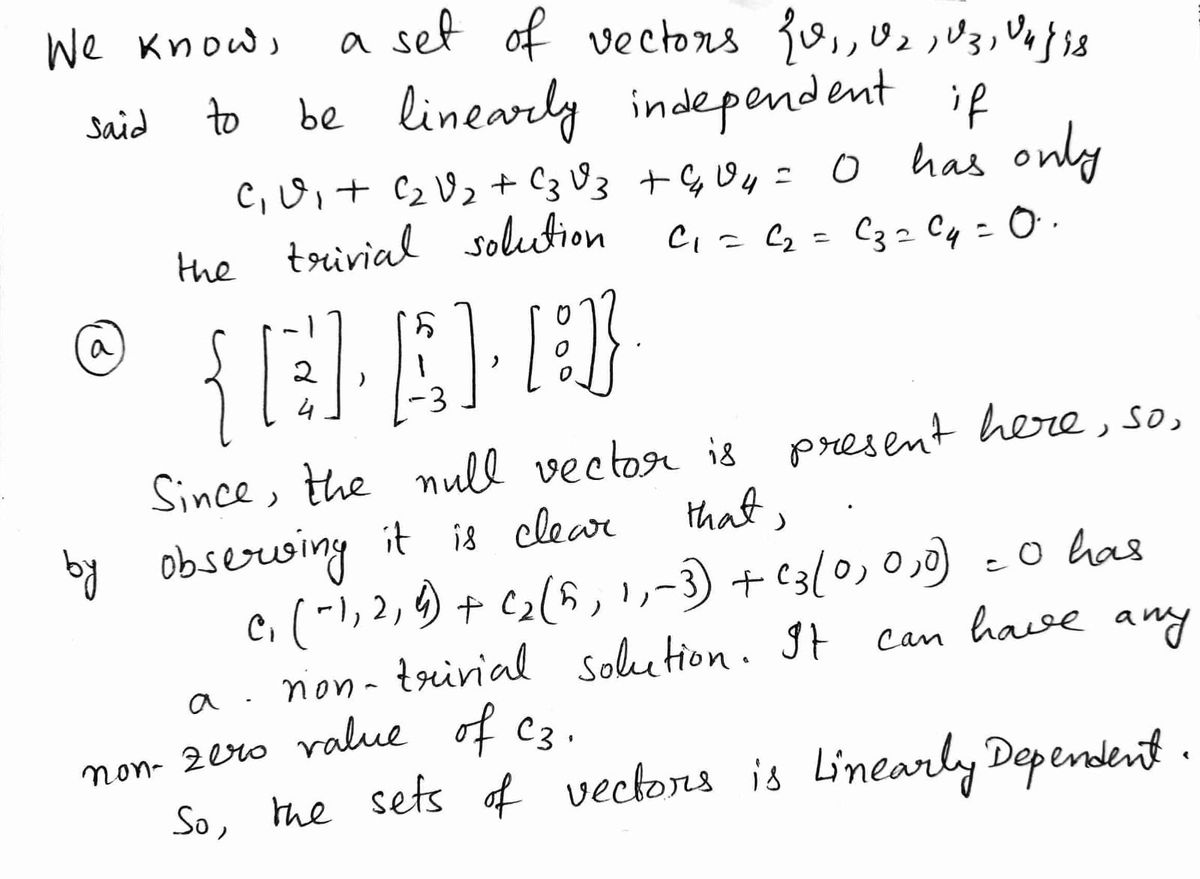 We know, a set of vectors {v₁, v₂, v₃, v₄} is
said to be linearly independent if
c₁v₁ + c₂v₂ + c₃v₃ + c₄v₄ = 0 has only
the trivial solution c₁ = c₂ = c₃ = c₄ = 0.
(a) { [-1 2 4], [5 1 -3], [0 0 0] }.
Since, the null vector is present here, so,
by observing it is clear that,
c₁(-1, 2, 4) + c₂(5, 1, -3) + c₃(0, 0, 0) = 0 has
a non-trivial solution. It can have any
non-zero value of c₃.
So, the sets of vectors is Linearly Dependent.